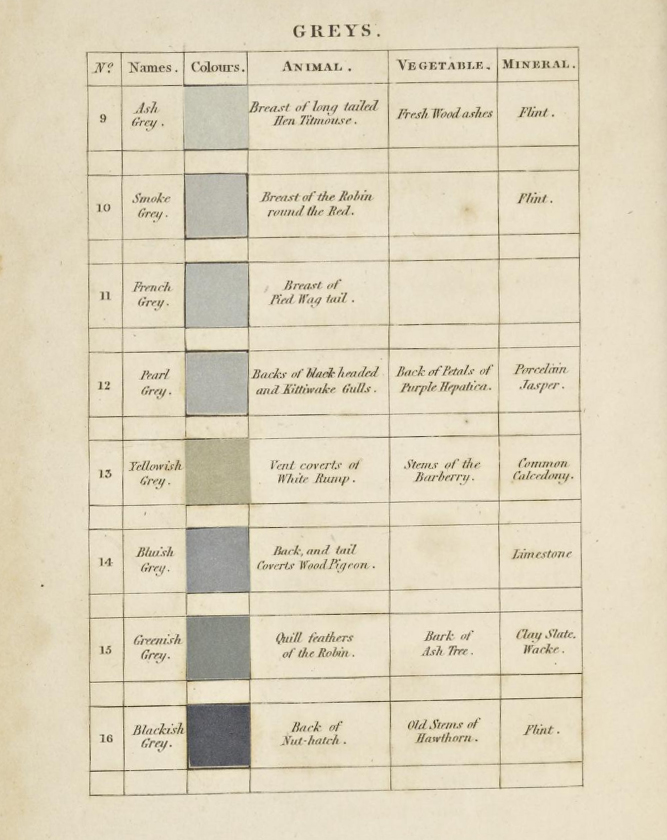 GREYS.
Nº Names. Colours. ANIMAL. VEGETABLE. MINERAL.
9 Ash Grey. Breast of long tailed Hen Titmouse. Fresh Wood ashes Flint.
10 Smoke Grey. Breast of the Robin round the Red. Flint.
11 French Grey. Breast of Pied Wag tail.
12 Pearl Grey. Backs of black headed and Kittiwake Gulls. Back of Petals of Purple Hepatica. Porcelain Jasper.
13 Yellowish Grey. Vent coverts of White Rump. Stems of the Barberry. Common Calcedony.
14 Bluish Grey. Back, and tail Coverts Wood Pigeon. Limestone
15 Greenish Grey. Quill feathers of the Robin. Bark of Ash Tree. Clay Slate. Wacke.
16 Blackish Grey. Back of Nut-hatch. Old Stems of Hawthorn. Flint.